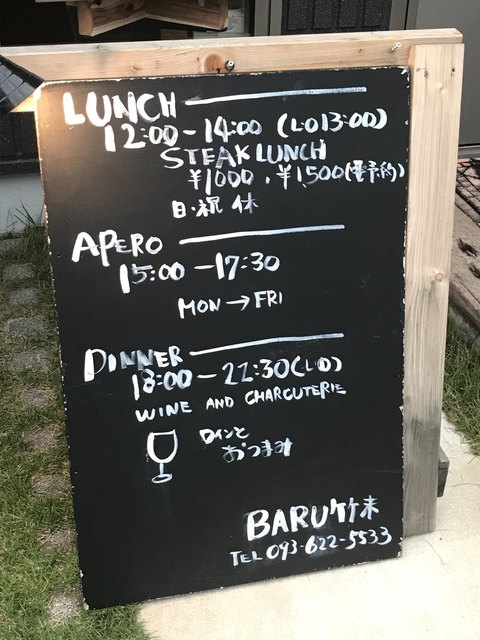 LUNCH
12:00-14:00 (LO13:00)
STEAK LUNCH
¥1000. ¥1,500(要予約)
日・祝 休
APERO
15:00-17:30
MON→FRI
DINNER
18:00-21:30(LO)
WINE AND CHARCUTERIE
ワインと
おつまみ
BARU竹末
TEL 093-622-5533